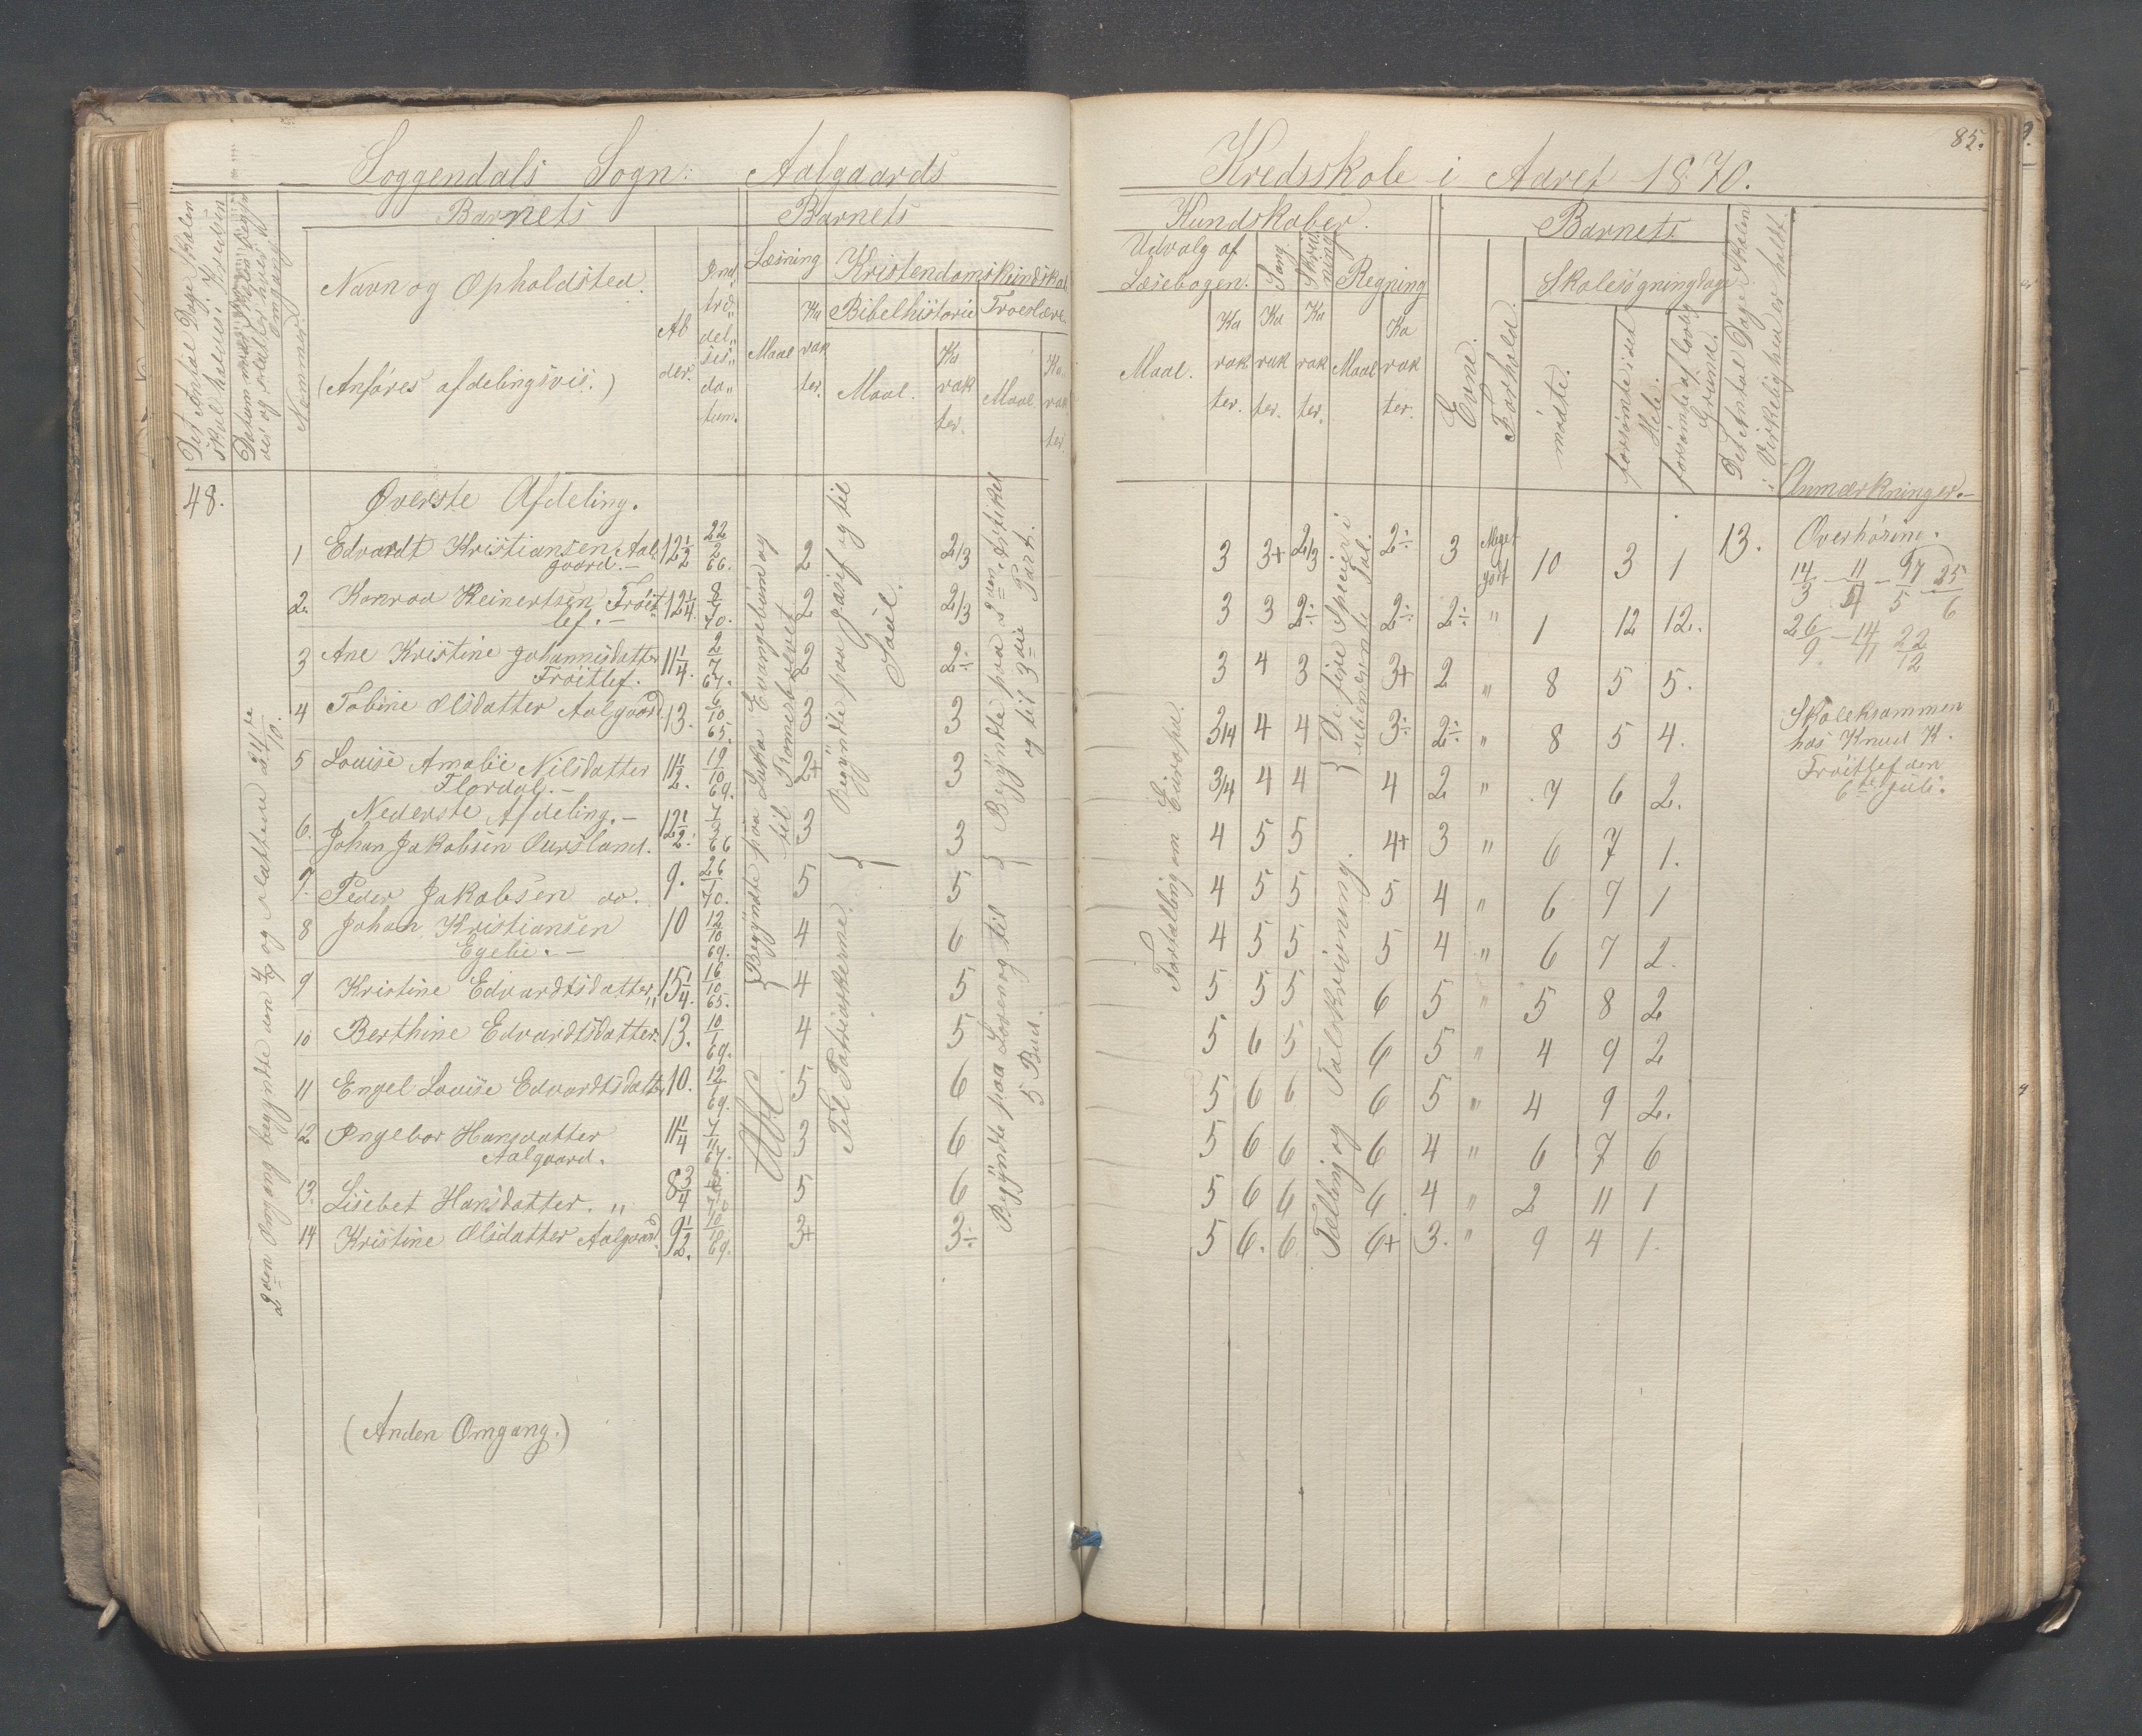 Soggendals Sogn: Aalgaards Kredsskole i Aaret 1870.
85.
Det Antal Dage Skolen
skal holdes i Kredsen
Nummer.
Barnets
Navn og Opholdsted.
(Anføres afdelingsvis.)
Al
der.
Ind
træ„
del„
ses„
da„
tum.
Barnets Kundskaber.
Læsning
Maal
Ka
rak
ter.
Kristendomskundskab
Bibelhistorie
Maal.
Ka
rak
ter.
Troeslære
Maal
Ka
rak
ter.
Udvalg af
Læsebogen.
Maal.
Ka
rak
ter.
Sang
Ka
rak
ter.
Skriv
ning
Ka
rak
ter.
Regning
Maal
Ka
rak
ter.
Barnets
Evne.
Forhold.
Skolesøgningsdage
mødte.
forsømte i det
Hele.
forsømte af lovlig
Grund.
Det Antal Dage Skolen
i Virkelighed er holdt.
Anmærkninger.
48.
2den Omgang begyndte den 4/7 og sluttede 24/10.
Øverste Afdeling.
1 Edvardt Kristiansen Aal„ 12 1/2 22/2 66. 2 2/3 3 3+ 2/3 2÷ 3 Meget 10 3 1 13.
gaard.— godt
2. Konrad Reinertsen Frøit 12 1/4. 8/7 70. 2 2/3 3 3 2÷ 2÷ 2÷ " 1 12 12.
lef.—
3 Ane Kristine Johannisdatter 11 1/4. 2/7 67. 2 2÷ 3 4 3 3+ 2 " 8 5 5.
Frøitlef.
4 Tobine Olsdatter Aalgaard 13. 6/10 65. 3 3 3/4 4 4 3÷ 2÷ " 8 5 4.
5 Louise Amalie Nilsdatter 11 1/2. 19/10 69. 2+ 3 3/4 4 4 4 2 " 7 6 2.
Flordal.—
Nederste Afdeling.—
6. Johan Jakobsen Aursland. 12 1/2. 3 3 4 5 5 4+ 3 " 6 7 1.
7. Peder Jakobsen do. 9. 5 5 4 5 5 5 4 " 6 7 1
8 Johan Kristiansen 10 12/10 69. 4 6 4 5 5 5 4 " 6 7 2.
Egelie.—
9 Kristine Edvardtsdatter „ 15 1/4. 16/10 65. 4 5 5 5 5 6 5 " 5 8 2
10 Berthine Edvardtsdatter. 13. 10/1 69. 4 5 5 6 5 6 5 " 4 9 2
11 Engel Louise Edvardtsdatter 10. 12/1 69. 5 6 5 6 6 6 5 " 4 9 2.
12 Ingebor Hansdatter 11 1/4 3 6 5 6 6 6 4 " 6 7 6
Aalgaard.
13. Lisebet Hansdatter. „ 8 3/4 5 6 5 6 6 6. 4 " 2 11 1
14 Kristine Olsdatter Aalgaard. 9 1/2. 10/10 69. 3+ 3÷ 5 6. 6 6+ 3. " 9 4 1.
Begyndte paa Lukas Evangelium og
til Romerbrevet
Begyndte paa Josef og til
Saul.
Til Patriarkerne.
Begyndte paa 2den Artikel
og til 3die Part.
Begyndte paa Loven og til
5 Bud.
Fortælling om Europa.
De fire Specier i
ubenevnte Tal.
Tælling og Talskrivning.
Overhøring.
14/3 — 11/4 —
26/9 — 14/11 22/12
Skoleksammen
hos Knud K.
Frøitlef den
6te Juli.
(Anden Omgang.)